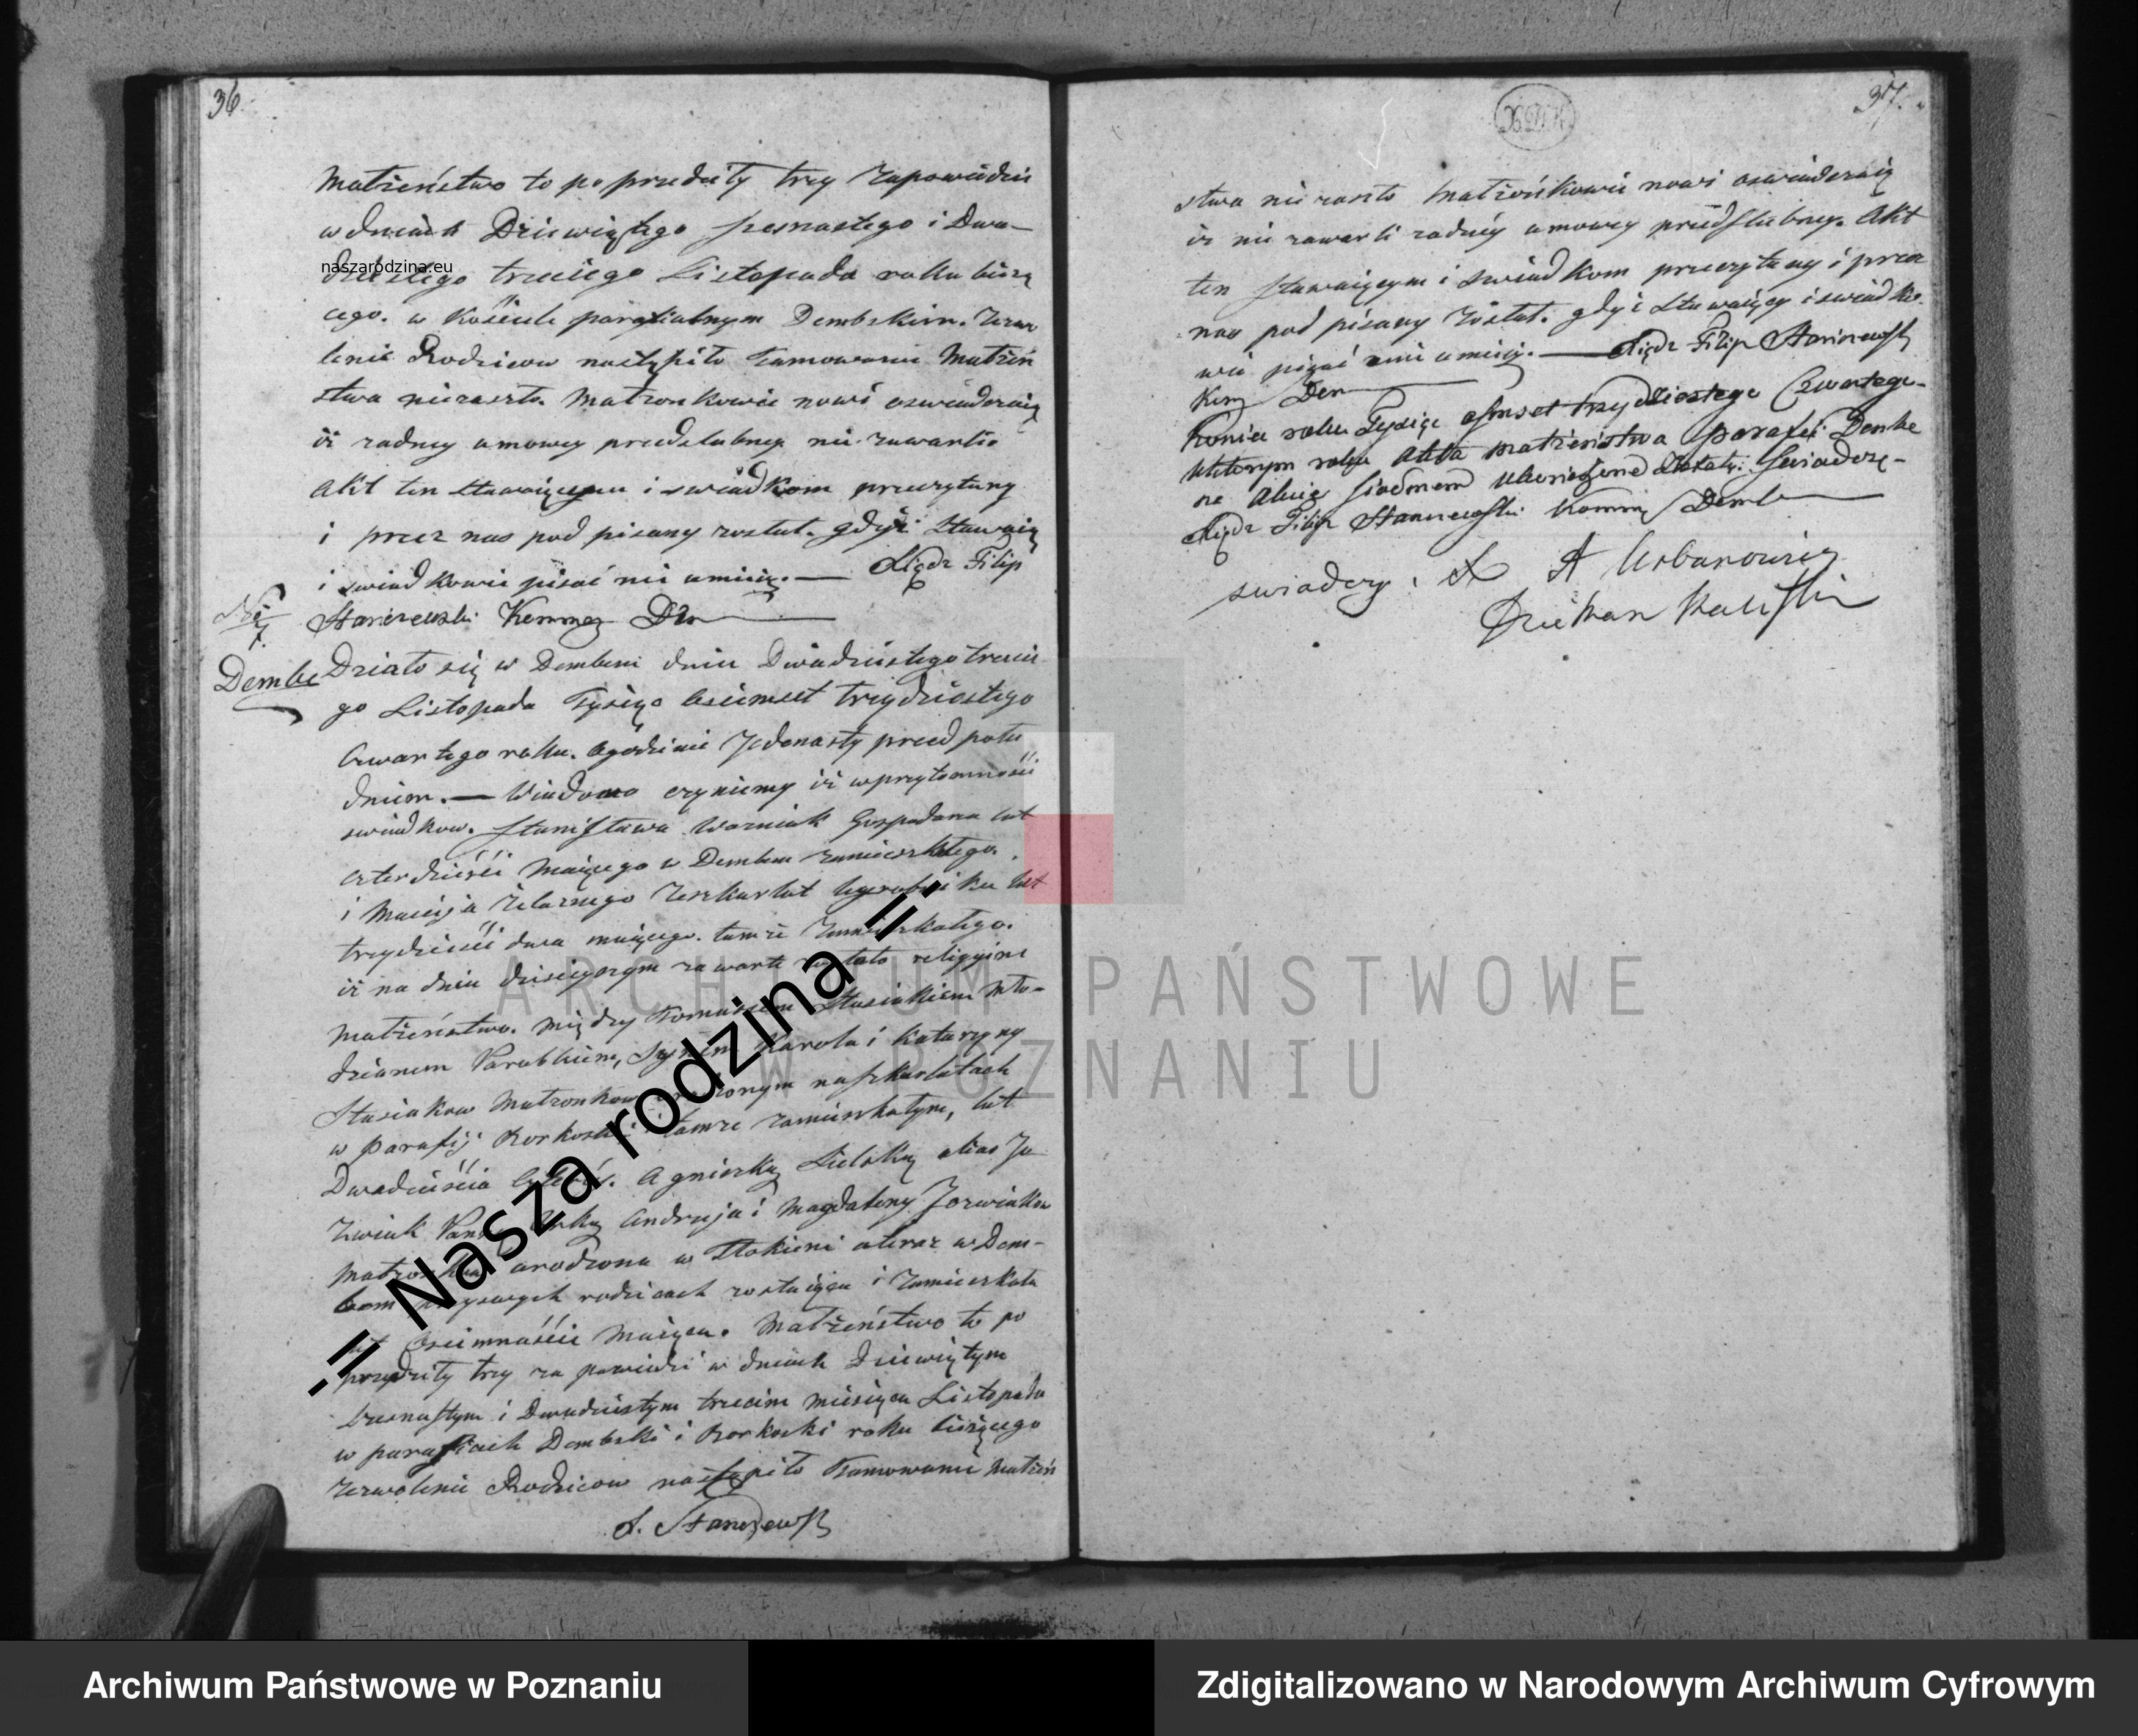 36
Małżeństwo to poprzedziły trzy Zapowiedzie
w dniach Dziewiątego szesnastego i Dwu-
dziestego trzeciego Listopada roku bieżą
cego. w Kościele parafialnym Dembskim. Zezwo
lenie Rodzicow nastąpiło Tamowanie Małżeń
stwa niezaszło. Małzonkowie nowi oswiadczaią
iż zadney umowy przedslubney nie zawarli.
Akt ten stawaiącemu i swiadkom przeczytany
i przez nas pod pisany został. gdyż Stawaią
i swiadkowie pisać nie umieią. — Xiądz Filip
Stanczewski Kommen Dem
No 7.
Dembe
Działo się w Dembem dniu Dwudziestego trzecie
go Listopada Tysiąc Osiemset trzydziestego
Czwartego roku. Ogodzinie Jedenasty przed połu
dniem. — Wiadomo czyniemy iż w przytomności
swiadkow. Stanisława Wozniak Gospodarza lat
czterdzieści Maiącego w Dembem zamieszkałego.
i Macieja Zelaznego Zeszkarłat lat
trzydzieści dwa maiącego. tamże Zamieszkałego.
iż na dniu dzisieyszym zawarte zostało religijne
Małżeństwo. Między Tomaszem Stasiakiem Mło-
dzianem Parobkiem, Synem Karola i Katarzyny
Stasiakow Małzonkow urodzonym naszkarłatach
w Parafij Borkoski tamze zamieszkałym, lat
Dwadzieścia . Agnieszką alias Jo
zwiak Panną Corką Andrzeja i Magdaleny Jozwiakow
Małzonkow urodzona w Tłokini a teraz w Dem-
bem przyswych rodzicach zostaiąca i Zamieszkała
lat Osiemnaście Maiąca. Małżeństwo to po
przedziły trzy zapowiedzi w dniach Dziewiątym
szesnastym i Dwudziestym trzecim miesiąca Listopada
w parafiach Dembski i Borkoski roku bieżącego
Zezwolenie Rodzicow nastąpiło Tamowanie Małżeń
Stanczewski
37.
stwa nie zaszło Małżonkowie nowi oswiadczaią
iz nie zawarli zadnéy umowy przedslubney. Akt
ten stawaiącym i swiadkom przeczytany i przez
nas pod pisany został. gdyż Stawaiący i swiadko
wie pisać nie umieią. — Xiądz Filip Stanczewski
Kom Dem
Koniec roku Tysiąc Osmset trzydziestego Czwartego
wktorym roku Akta małżeństwa Parafii Dembe
na Akcie siodmem ukończone zostały. Swiadczę-
Xiądz Filip Stanczewski Komm Demb
swiadczy A Urbanowicz
naszarodzina.eu
-= Nasza rodzina =-
ARCHIWUM PAŃSTWOWE
W POZNANIU
Archiwum Państwowe w Poznaniu
Zdigitalizowano w Narodowym Archiwum Cyfrowym